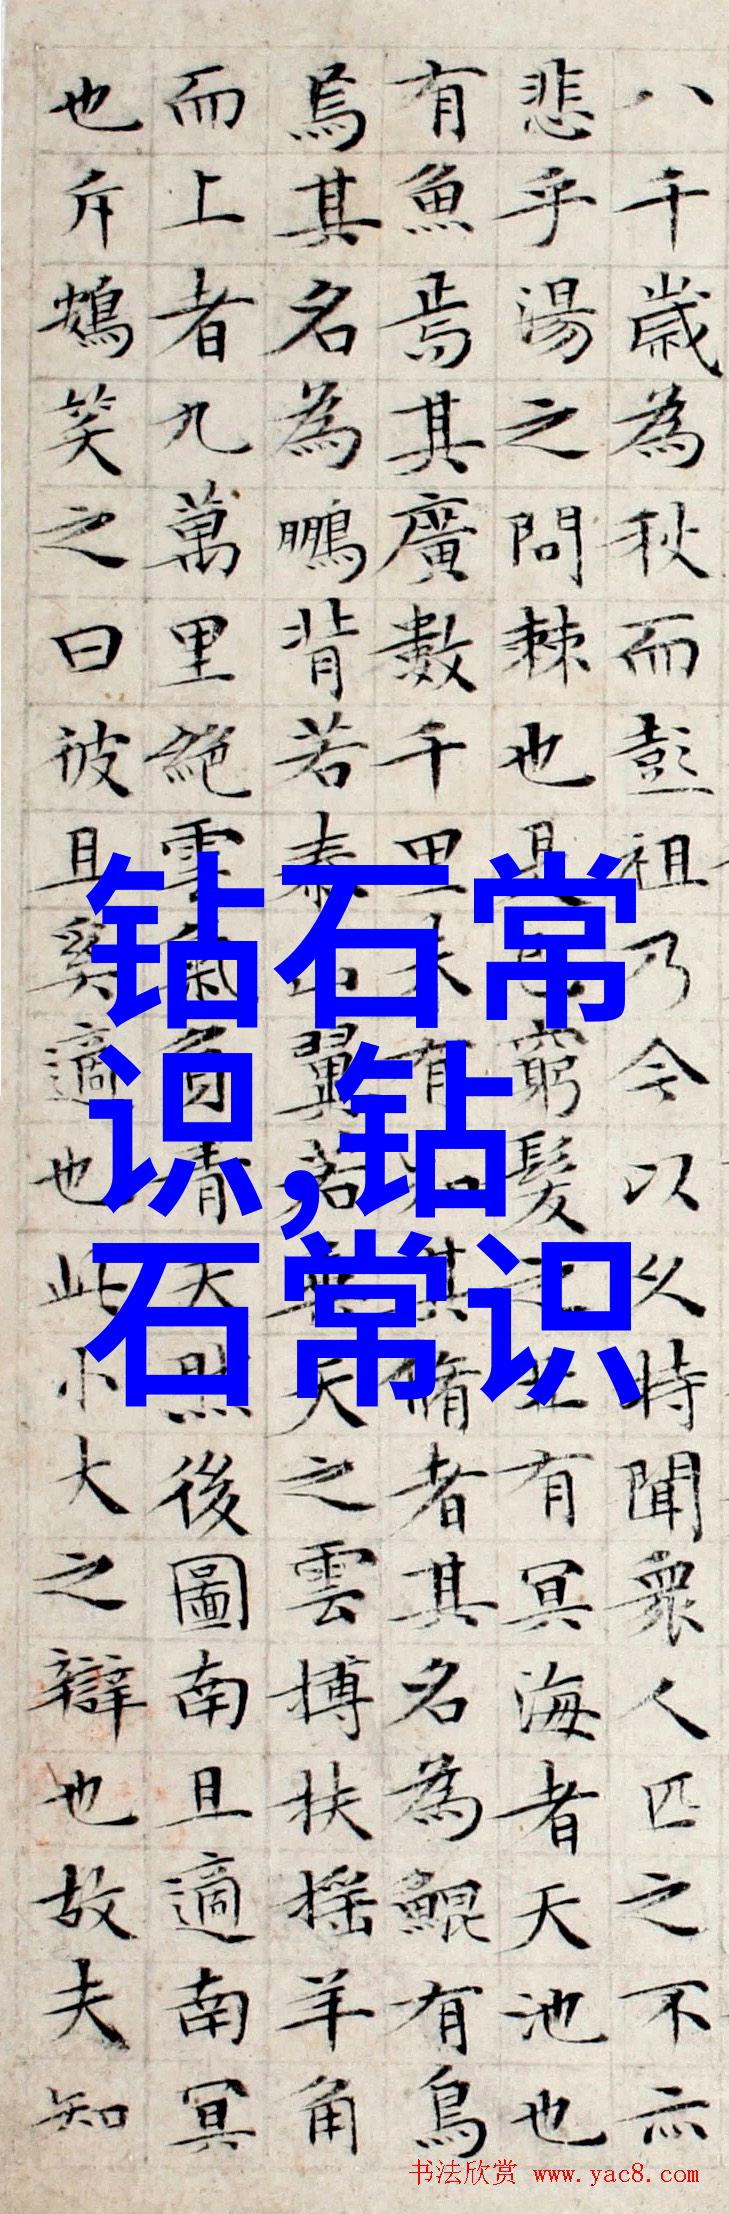 八千歲為秋而彭祖乃今以久特聞衆人匹之不亦
悲乎湯之問棘也是已窮髮之北有冥海者天池也
有魚焉其廣數千里未有知其脩者其名為鯤有鳥
焉其名為鵬背若泰山翼若垂天之雲搏扶搖羊角
而上者九萬里絕雲氣負青天然後圖南且適南冥
也斥鴳笑之曰彼且奚適也此小大之辯也故夫知
钻石常
识,钻
石常识
书法欣赏 www.yac8.com